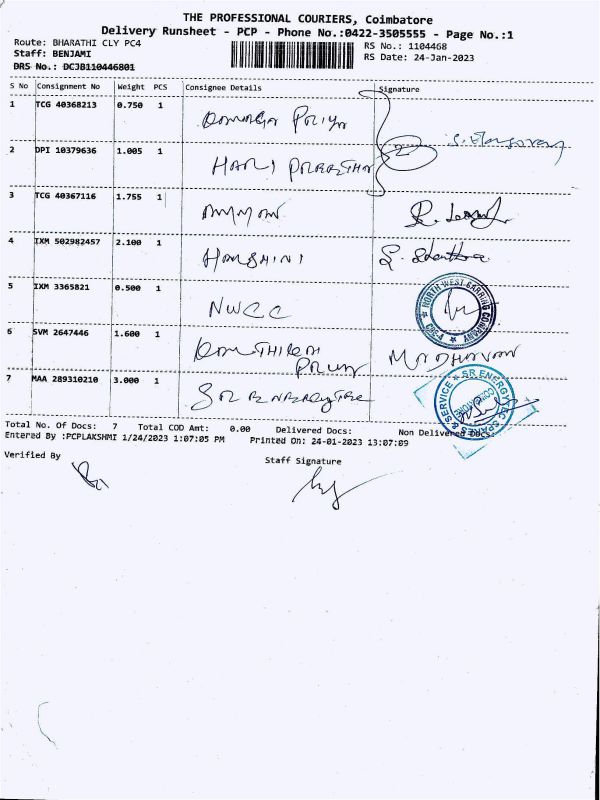 THE PROFESSIONAL COURIERS, Coimbatore
Delivery Runsheet - PCP - Phone No.:0422-3505555 - Page No.:1
Route: BHARATHI CLY PC4
RS No.: 1104468
Staff: BENJAMI
RS Date: 24-Jan-2023
DRS No.: DCJB110446801
S No Consignment No Weight PCS Consignee Details Signature
1 TCG 40368213 0.750 1
2 DPI 10379636 1.005 1 HARI
3 TCG 40367116 1.755 1
4 IXM 502982457 2.100 1 HARSHINI
5 IXM 3365821 0.500 1 NWCC NORTH WEST CARRING COMPANY
6 SVM 2647446 1.600 1 MADHAVAN
7 MAA 289310210 3.000 1 SR ENERGY SPARES & SERVICE
Total No. Of Docs: 7 Total COD Amt: 0.00 Delivered Docs: Non Delivered Docs:
Entered By :PCPLAKSHMI 1/24/2023 1:07:05 PM Printed On: 24-01-2023 13:07:09
Verified By
Staff Signature